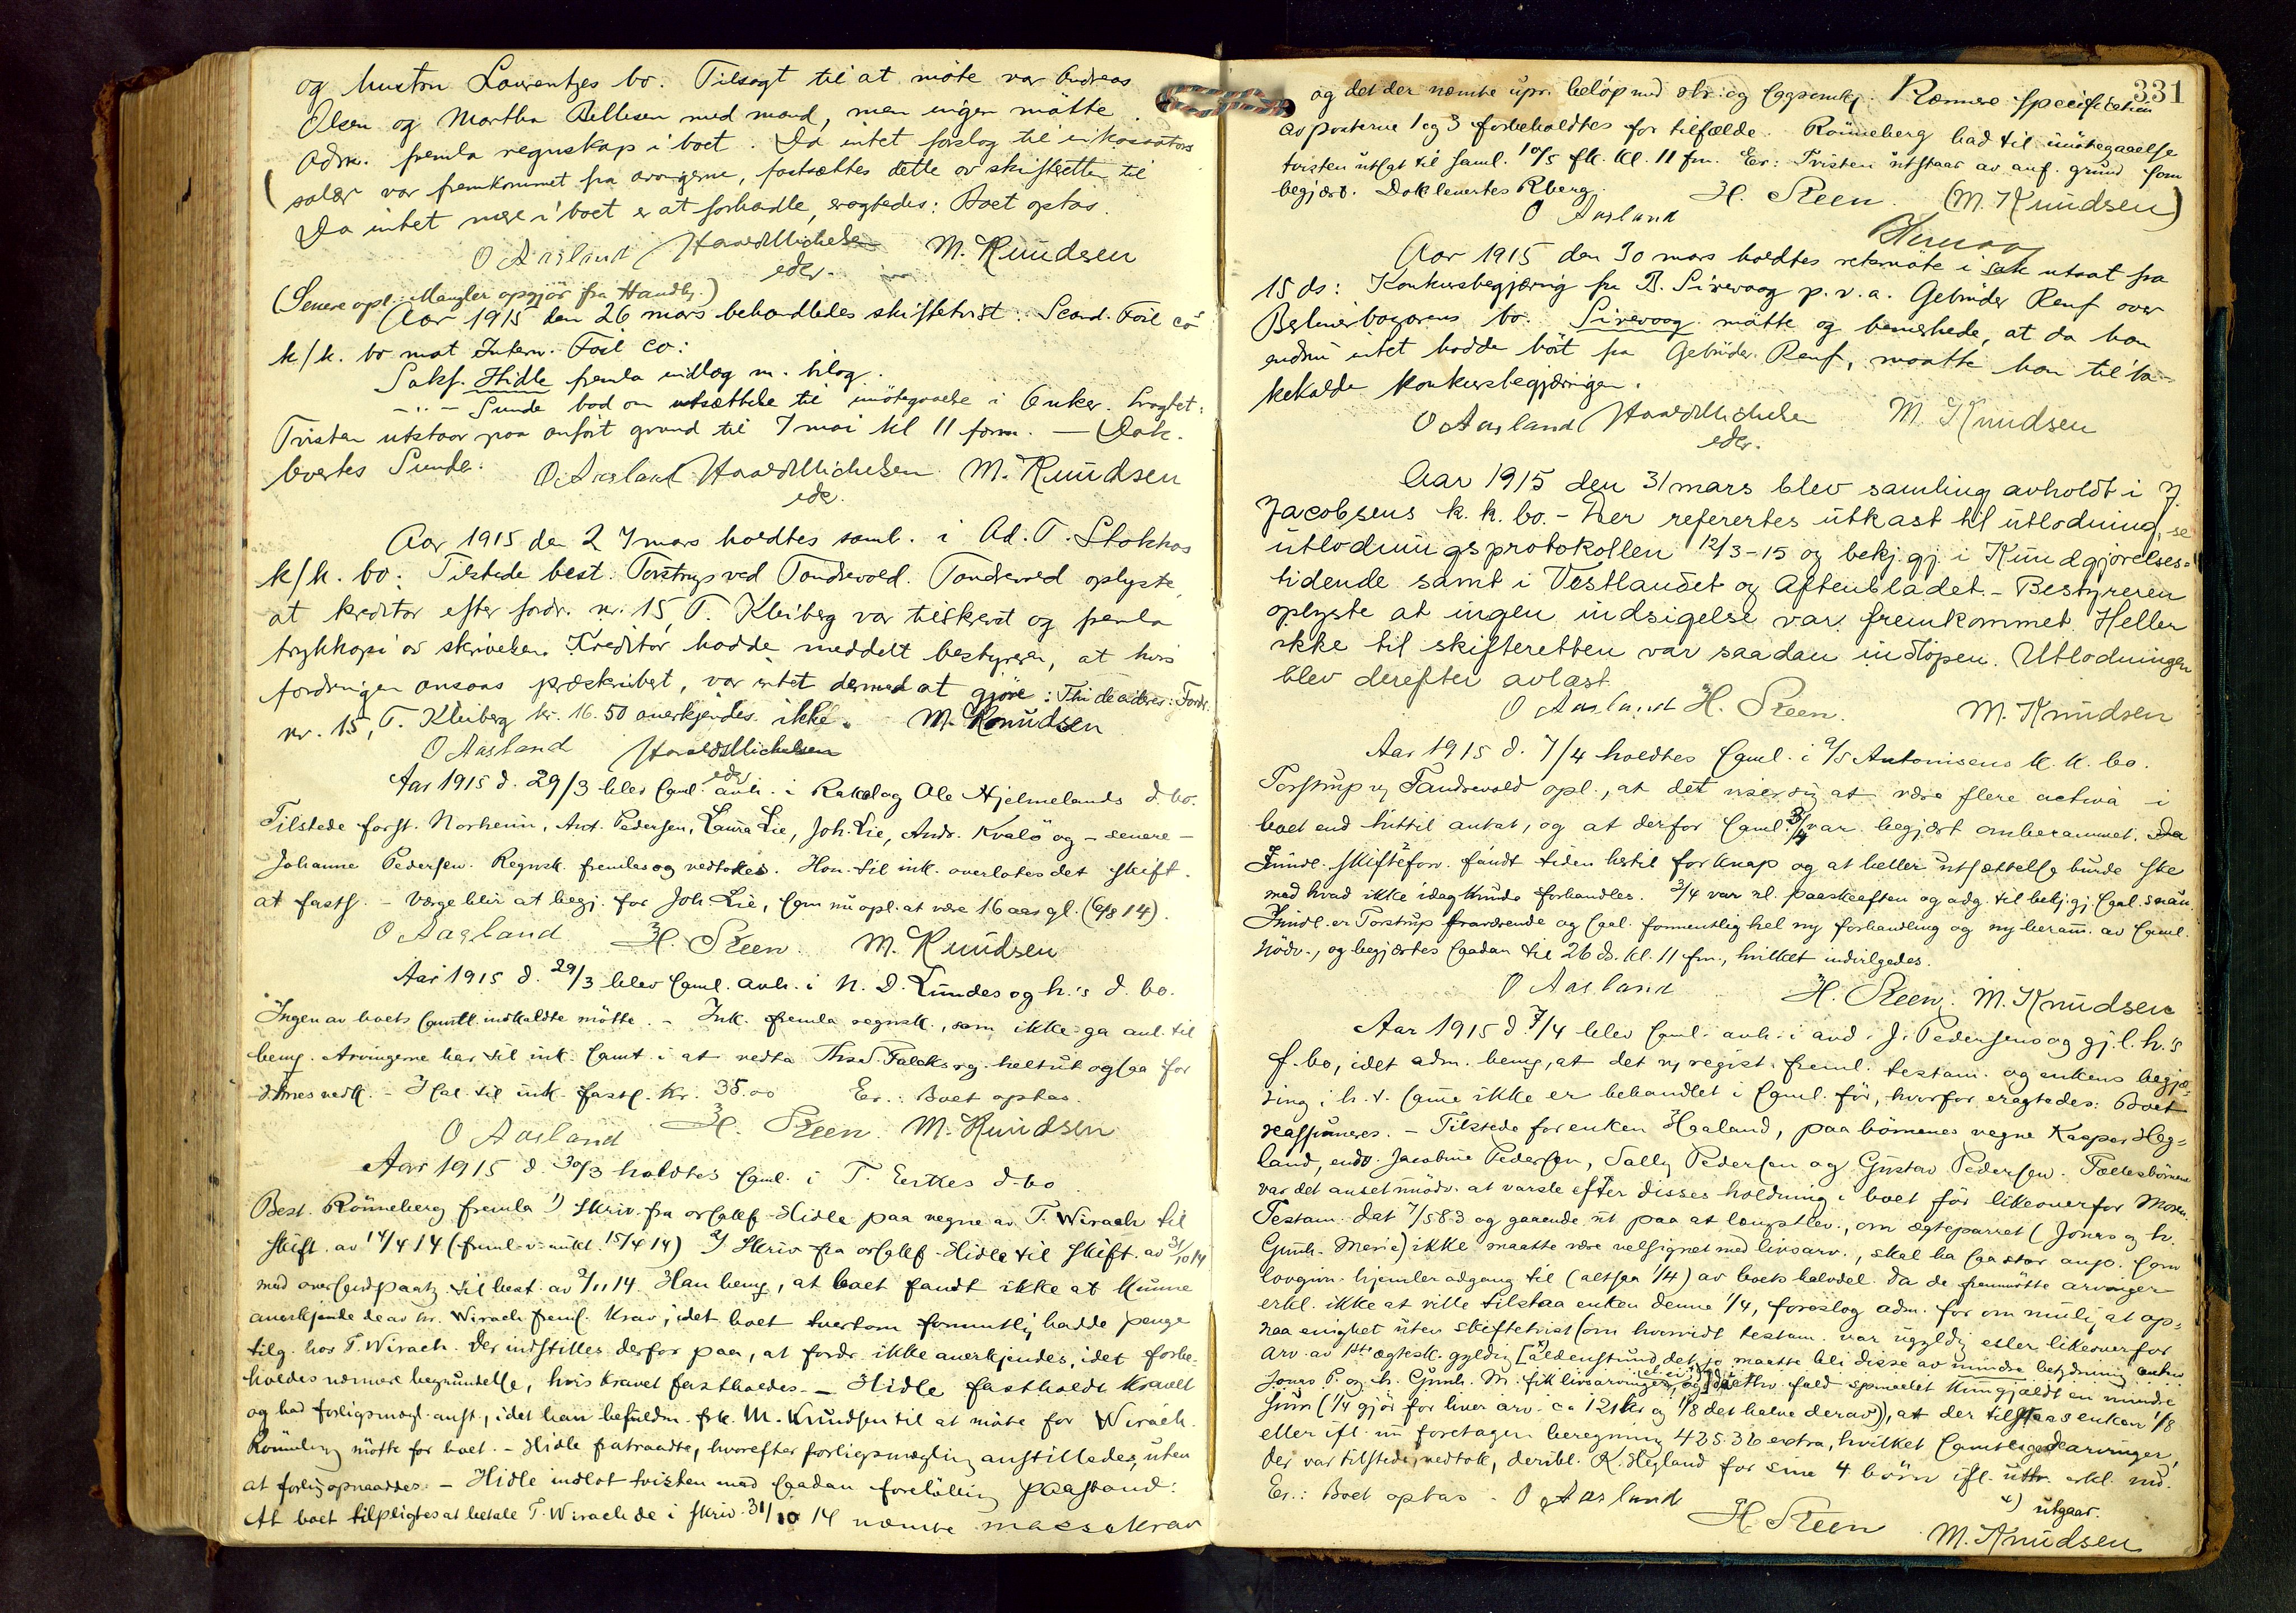 og hustru Laurentzes bo. Tilsagt til at møte var Andreas
Olsen og Martha Bellesen med mand, men ingen møtte.
Adm. fremla regnskap i boet. Da intet forslag til inkassators
salær var fremkommet fra arvingerne, fastsættes dette av skifteretten til
Da intet mere i boet er at forhandle, eragtedes: Boet optas.
O Aasland Harald Michelsen M. Knudsen
edsv.
(Senere opl. Mangler opgjør fra Handbg.)
Aar 1915 den 26 mars behandledes skiftetvist: Scand. Foil Co
k/k. bo mot Intern. Foil Co:
Sakf. Hidle fremla indlæg m. bilag.
– " – Sunde bad om utsættelse til imøtegaaelse i 6 uker. Eragtet:
Tvisten utstaar paa anført grund til 7 mai kl 11 form. — Dok.
levertes Sunde. O. Aasland Harald Michelsen M. Knudsen
eds.
Aar 1915 den 27 mars holdtes saml. i Ad. T. Stokkas
k/k. bo. Tilstede best. Torstrup ved Tandrevold. Tandrevold oplyste,
at kreditor efter fordr. nr. 15 T. Kleiberg var tilskrevet og fremla
trykkopi av skrivelsen. Kreditor hadde meddelt bestyreren, at hvis
fordringen ansaas præskribert, var intet dermed at gjøre: Thi decideres: Fordr.
nr. 15, T. Kleiberg kr. 16.50 anerkjendes ikke. M. Knudsen
O Aasland Harald Michelsen
edsv
Aar 1915 d. 29/3 blev saml. avh. i Rakel og Ole Hjelmelands d. bo.
Tilstede forst. Norheim, Ant. Pedersen, Laura Lie, Joh. Lie, Andr. Kvalø og – senere –
Johanne Pedersen. Regnsk. fremlas og vedtokes. Hon. til ink. overlotes det skift.
at fasts. – Værge blir at begj. for Joh. Lie, som nu opl. at være 16 aar gl. (6/8 14).
O Aasland H. Steen. M. Knudsen
Aar 1915 d. 29/3 blev saml. avh. i N. D. Lundes og h.'s d. bo.
Ingen av boets samtl. indkaldte møtte. – Ink. fremla regnsk., som ikke ga anl. til
bem. Arvingerne har til ink. samt. i at vedta Thsd. Falcks rg. helt ut ogsaa for
deres vedk. – Sal. til ink. fasts. kr. 35.00 Er.: Boet optas.
O Aasland H. Steen. M. Knudsen
Aar 1915 d. 30/3 holdtes saml. i T. Eerkes d. bo
Best. Rönneberg fremla 1) Skriv. fra orsakf. Hidle paa vegne av T. Wirach til
skift. av 14/4 14 (freml. v. mkt. 15/4 14) 2) Skriv fra orsakf. Hidle til skift. av 31/10 14
med oversendpaategn. til best. av 2/11 14. Han bem., at boet fandt ikke at kunne
anerkjende de av hr. Wirach frems. krav, idet boet tvertom formentlig hadde penge
tilg. hos T. Wirach. Der indstilles derfor paa, at fordr. ikke anerkjendes, idet forbe-
holdes nærmere begrundelse, hvis kravet fastholdes. – Hidle fastholdt kravet
og bad forligsmægl. anst., idet han befuldm. frk. M. Knudsen til at møte for Wirach.
Rönneberg møtte for boet. – Hidle fratraadte, hvorefter forligsmægling anstilledes, uten
at forlig opnaaddes. – Hidle indlot tvisten med saadan foreløbig paastand:
At boet tilpligtes at betale T. Wirach de i skriv. 31/10 14 nævnte massekrav
331
og det der nævnte upr. beløp med rtr. og sagsomk. Nærmere specifikation
av posterne 1 og 3 forbeholdtes for tilfælde. Rönneberg bad til imøtegaaelse
tvisten utsat til saml. 10/5 fk. kl. 11 fm. Er: Tvisten utstaar av anf. grund som
begjært. Dok levertes Rberg. H. Steen. (M. Knudsen)
O Aasland
Aar 1915 den 30 mars holdtes retsmøte i sak utsat fra
15 ds: Konkursbegjæring fra B. Sirevaag p. v. a. Gebrüder Renf over
Berlinerbazarens bo. Sirevaag møtte og bemerkede, at da han
endnu intet hadde hørt fra Gebrüder Renf, maatte han tilba-
kekalde konkursbegjæringen.
O Aasland Harald Michelsen M. Knudsen
edsv.
Aar 1915 den 31 mars blev samling avholdt i J.
Jacobsens k. k. bo. – Der referertes utkast til utlodning, se
utlodningsprotokollen 12/3-15 og bekj. gj. i Kundgjørelses-
tidende samt i Vestlandet og Aftenbladet. – Bestyreren
oplyste at ingen indsigelse var fremkommet. Heller
ikke til skifteretten var saadan indløpen. Utlodningen
blev derefter avlæst.
O Aasland H. Steen. M. Knudsen
Aar 1915 d. 7/4 holdtes saml. i A/S Antonisens k. k. bo.
Torstrup v. Tandrevold opl., at det viser sig at være flere activa i
boet end hittil antat, og at derfor saml. 3/4 var begjært anberammet. Da
Imidl. skifteforv. fandt tiden hertil for knap og at heller utsættelse burde ske
med hvad ikke idag kunde forhandles. 3/4 var nl. paaskeaften og adg. til bekj. gj. saal. snau.
Imidl. er Torstrup fraværende og saal. formentlig hel ny forhandling og ny beram. av saml.
nødv., og begjærtes saadan til 26 ds. kl. 11 fm., hvilket indvilgedes.
O Aasland H. Steen. M. Knudsen
Aar 1915 d 7/4 blev saml. avh. i avd. J. Pedersens og gj. l. h.'s
f. bo, idet adm. bem., at det nu regist. freml. testam. og enkens begjæ-
ring i h. t. samme ikke er behandlet i saml. før, hvorfor eragtedes: Boet
reassumeres. – Tilstede for enken Haaland, paa børnenes vegne Kasper Heg-
land, endv. Jacobine Pedersen, Sally Pedersen og Gustav Pedersen. Fællesbørnene
var det anset unødv. at varsle efter disses holdning i boet før likeoverfor Moren.
Testam. dat 7/5 83 og gaaende ut paa at længstlev., om ægteparret (Jonas og h.
Gunh. Merie) ikke maatte være velsignet med livsarv., skal ha saa stor anp. som
lovgivn. hjemler adgang til (altsaa 1/4) av boets halvdel. Da de fremmøtte arvinger
erkl. ikke at ville tilstaa enken denne 1/4, foreslog adm. for om mulig at op-
naa enighet uten skiftetvist (om hvorvidt testam. var ugyldig eller likeoverfor
arv. av 1ste ægtesk. gyldig [aldenstund det jo maatte bli disse av mindre betydning
Jonas P. og h. Gunh. M. fik livsarvinger, fald spørsmaalet kun gjaldt en mindre
sum (1/4 gjør for hver arv. ca 121 kr og 1/8 det halve derav)), at der tilstaas enken 1/8
eller ifl. nu foretagen beregning 425.36 extra, hvilket samtlige arvinger,
der var tilstede, vedtok, deribl. K. Hegland for sine 4 børn ifl. uttr. erkl. nu.
Er.: Boet optas. O Aasland
x) utgaar.
H. Steen M. Knudsen